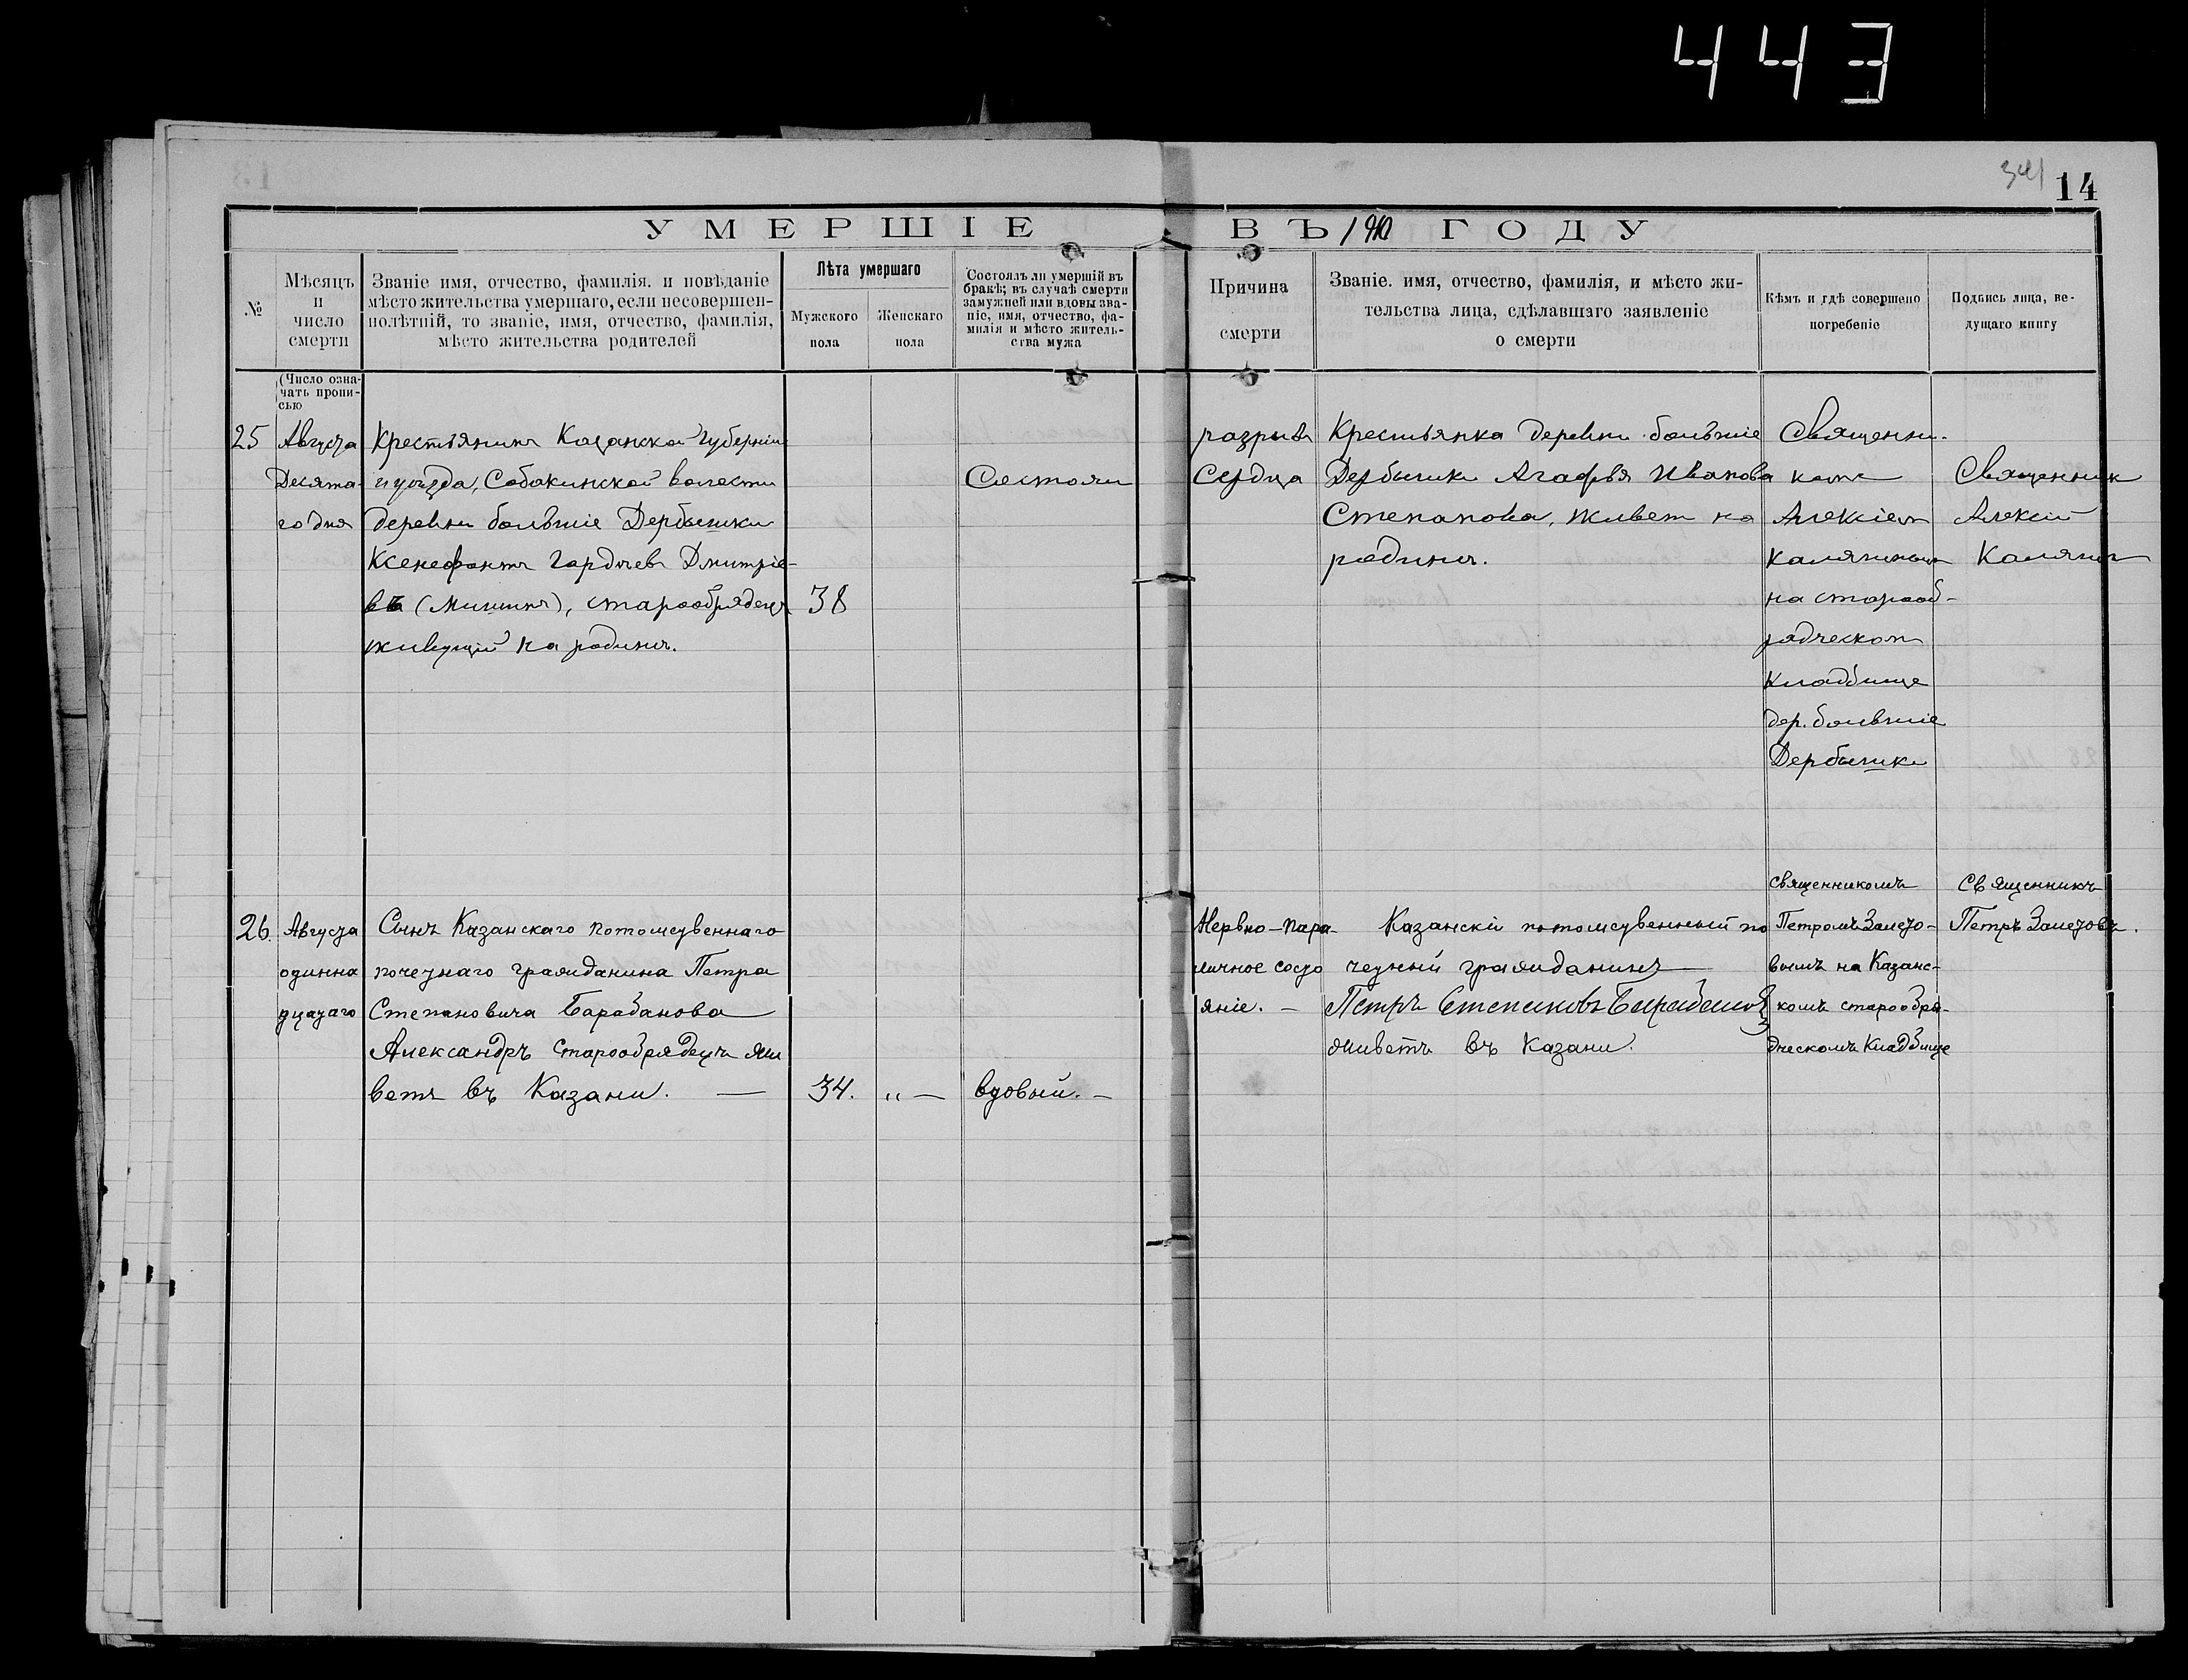 443
341 14
УМЕРШІЕ ВЪ 1910 ГОДУ
№
Мѣсяцъ
и
число
смерти
Званіе имя, отчество, фамилія. и повѣданіе
мѣсто жительства умершаго, если несовершен-
нолѣтній, то званіе, имя, отчество, фамилія,
мѣсто жительства родителей
Лѣта умершаго
Мужского
пола
Женскаго
пола
Состоялъ ли умершій въ
бракѣ; въ случаѣ смерти
замужней или вдовы зва-
ніе, имя, отчество, фа-
милія и мѣсто житель-
ства мужа
Причина
смерти
Званіе. имя, отчество, фамилія, и мѣсто жи-
тельства лица, сдѣлавшаго заявленіе
о смерти
Кѣмъ и гдѣ совершено
погребеніе
Подпись лица, ве-
дущаго книгу
(Число озна-
чать пропи-
сью
25
Августа
Десята-
го дня
Крестьянинъ Казанской губерніи
и уѣзда, Собакинской волости
деревни большіе Дербышки
Ксенофонтъ Гордѣевъ Дмитріе-
въ (Мишинъ), старообрядецъ
живущій на родинѣ.
38
Состоялъ
разрывъ
Сердца
Крестьянка деревни большіе
Дербышки Агафья Иванова
Степанова, живет на
родинѣ.
Священни-
комъ
Алексіемъ
Калягинымъ
на старооб-
рядческом
кладбище
дер. большіе
Дербышки
Священник
Алексій
Калягин
26.
Августа
одинна
дцатаго
Сынъ Казанскаго потомственнаго
почетнаго гражданина Петра
Степановича Барабанова
Александръ Старообрядецъ жи
ветъ въ Казани. —
34.
" —
вдовый. —
Нервно-пара-
личное состо
яніе. —
Казанскій потомственный по
четный гражданинъ
Петръ Степановъ Барабановъ
живетъ въ Казани.
священникомъ
Петромъ Залето-
вымъ на Казанс-
комъ старообря-
дческомъ Кладбище
Священникъ
Петръ Залетовъ.